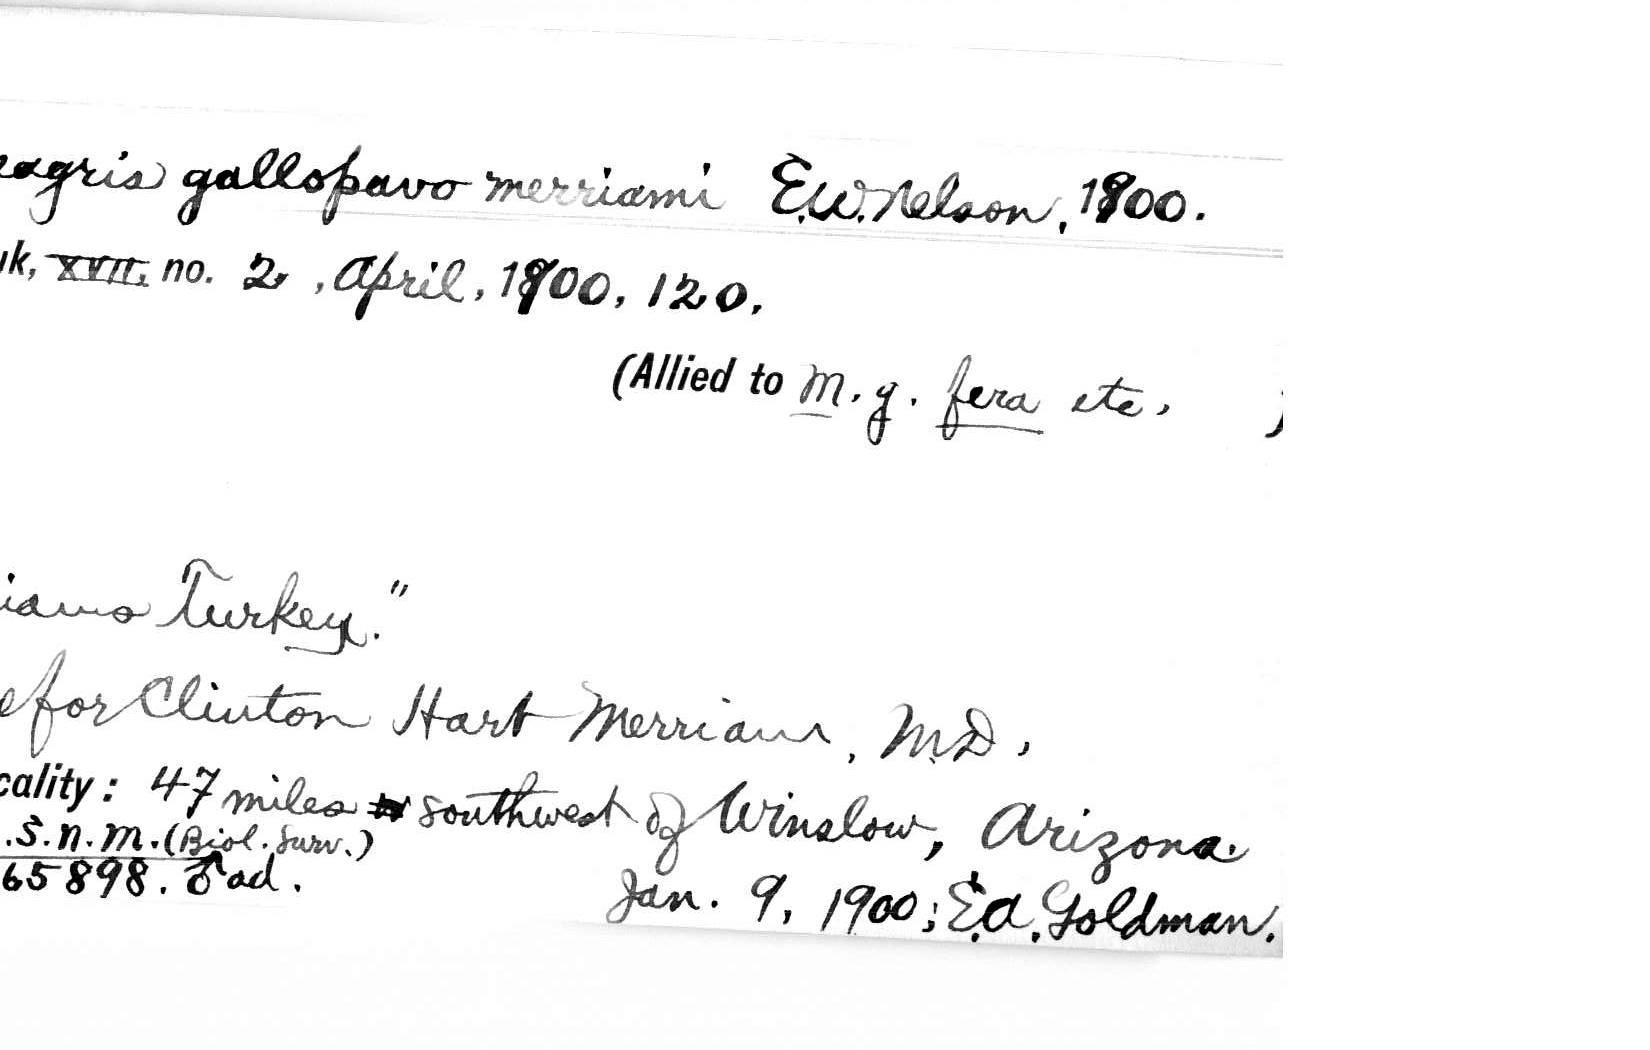 eagris gallopavo merriami E.W. Nelson, 1900.
uk, XVII, no. 2, April, 1900, 120.
(Allied to M. g. fera etc. )
iams Turkey."
e for Clinton Hart Merriam, M.D.
cality: 47 miles southwest of Winslow, Arizona.
.S.N.M. (Biol. Surv.)
65898. ♂ ad.
Jan. 9, 1900; E.A. Goldman.